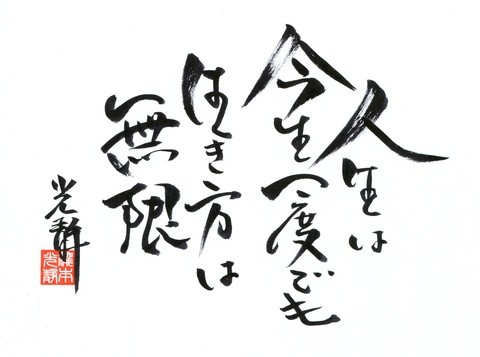 人生は
今生一度でも
生き方は
無限
光静